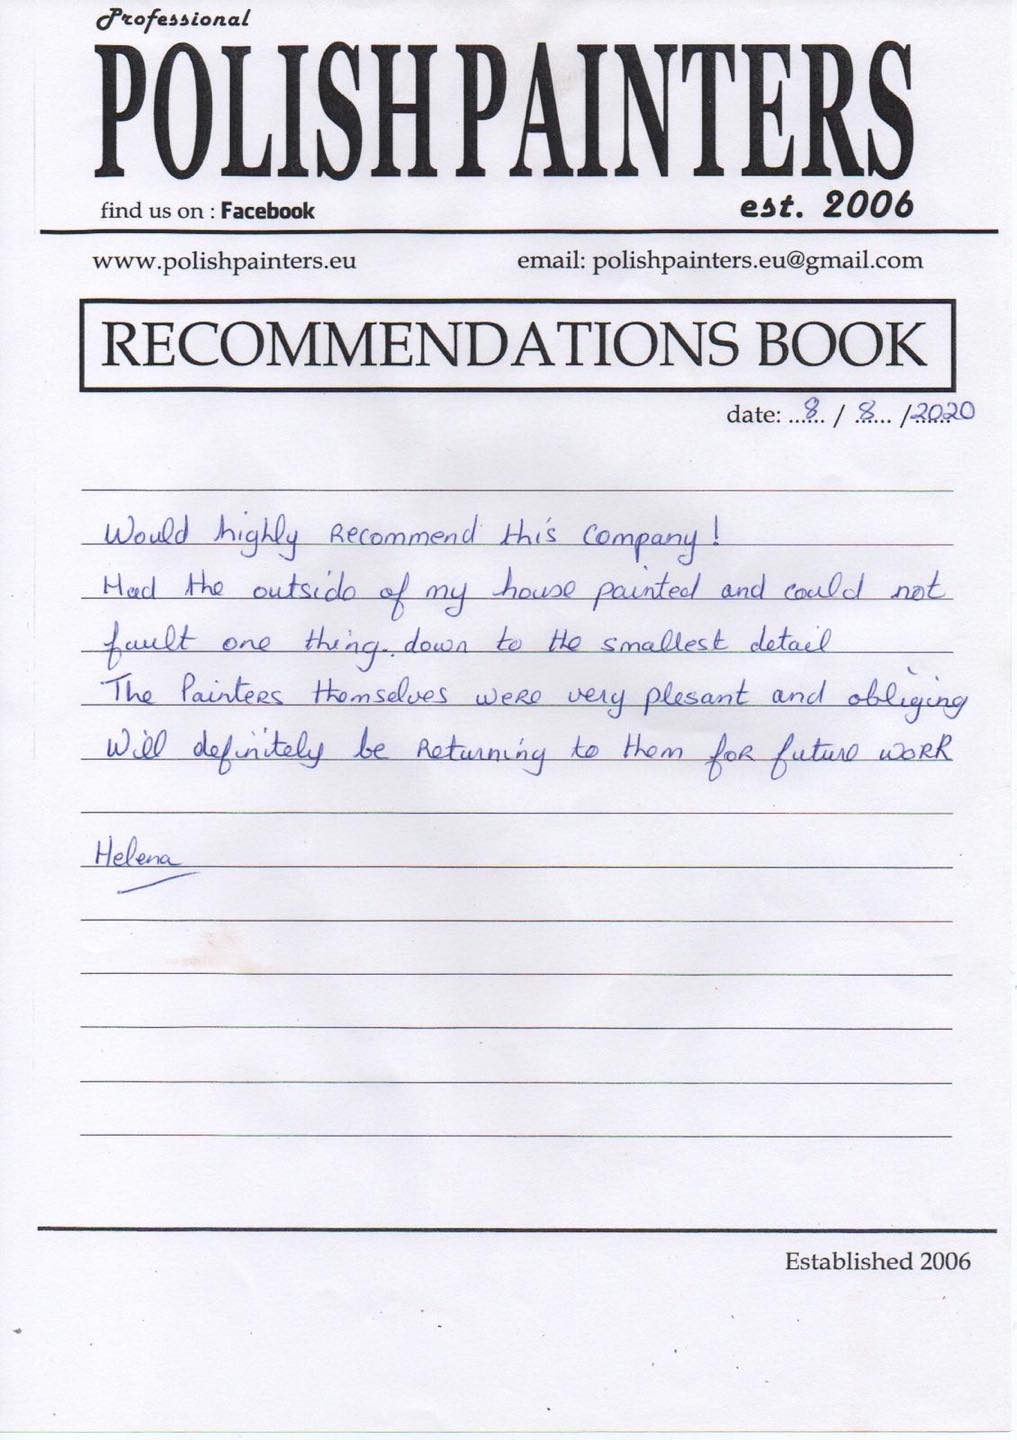 Professional
POLISH PAINTERS
find us on : Facebook
est. 2006
www.polishpainters.eu
email: polishpainters.eu@gmail.com
RECOMMENDATIONS BOOK
date: ..8.. / .8.. /2020
Would highly Recommend this Company!
Had the outside of my house painted and could not
fault one thing. down to the smallest detail
The Painters themselves were very plesant and obliging
Will definitely be Returning to them for future work
Helena
Established 2006